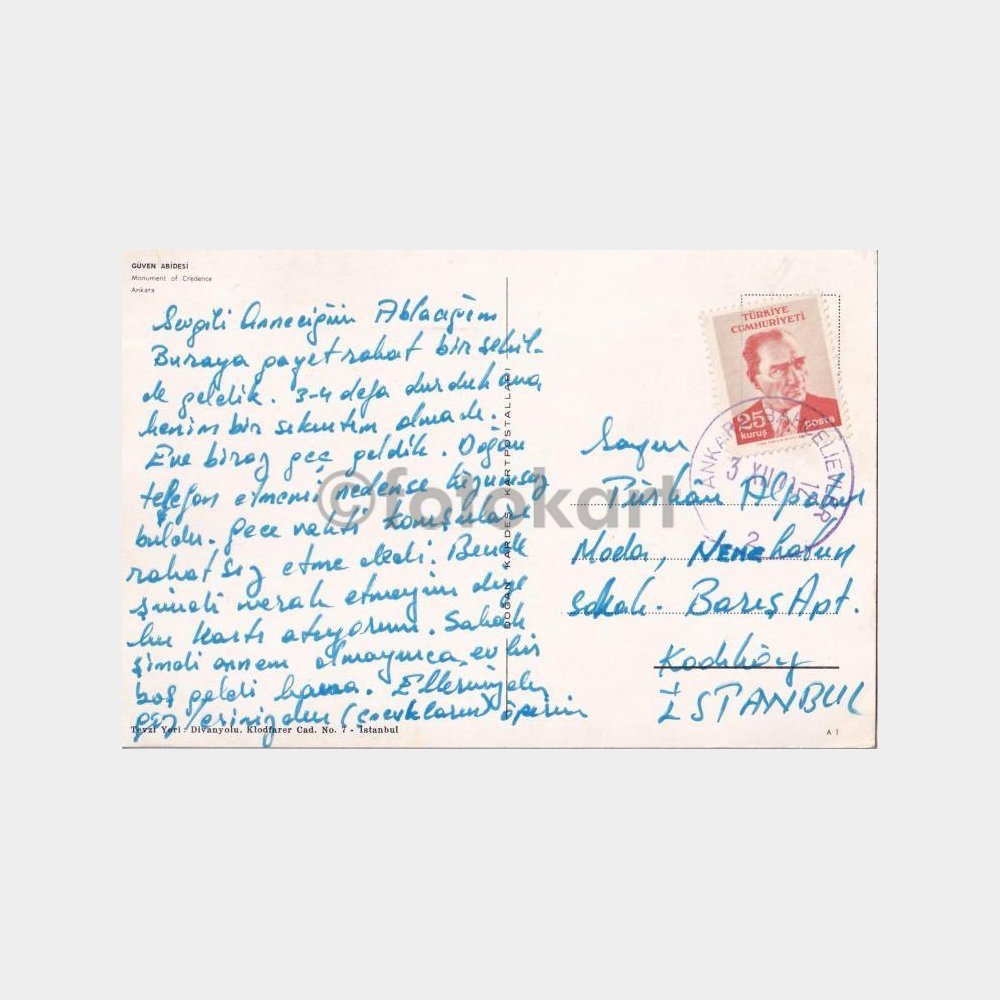 GÜVEN ABİDESİ
Monument of Credence
Ankara
Sevgili Anneciğim Ablacığım
Buraya gayet rahat bir şekil-
de geldik. 3-4 defa durduk ama
benim bir sıkıntım olmadı.
Eve biraz geç geldik. Doğan
telefon etmemi nedense lüzumsuz
buldu. gece vakti komşuları
rahatsız etme dedi. Bende
şimdi merak etmeyin diye
bu kartı atıyorum. Sabah
şimdi annem olmayınca, ev bir
boş geldi bana. Ellerinizden
gözlerinizden (çocukların) öperim
Tevzi Yeri: Divanyolu, Klodfarer Cad. No. 7 - İstanbul
DOĞAN KARDEŞ KARTPOSTALLARI
TÜRKİYE
CUMHURİYETİ
25
kuruş
POSTA
ANKARA
3 XII
12
2
Sayın
Alpalın
Moda, NEMZ
sokak. Barış Apt.
Kadıköy
İSTANBUL
A 1
©fotokart